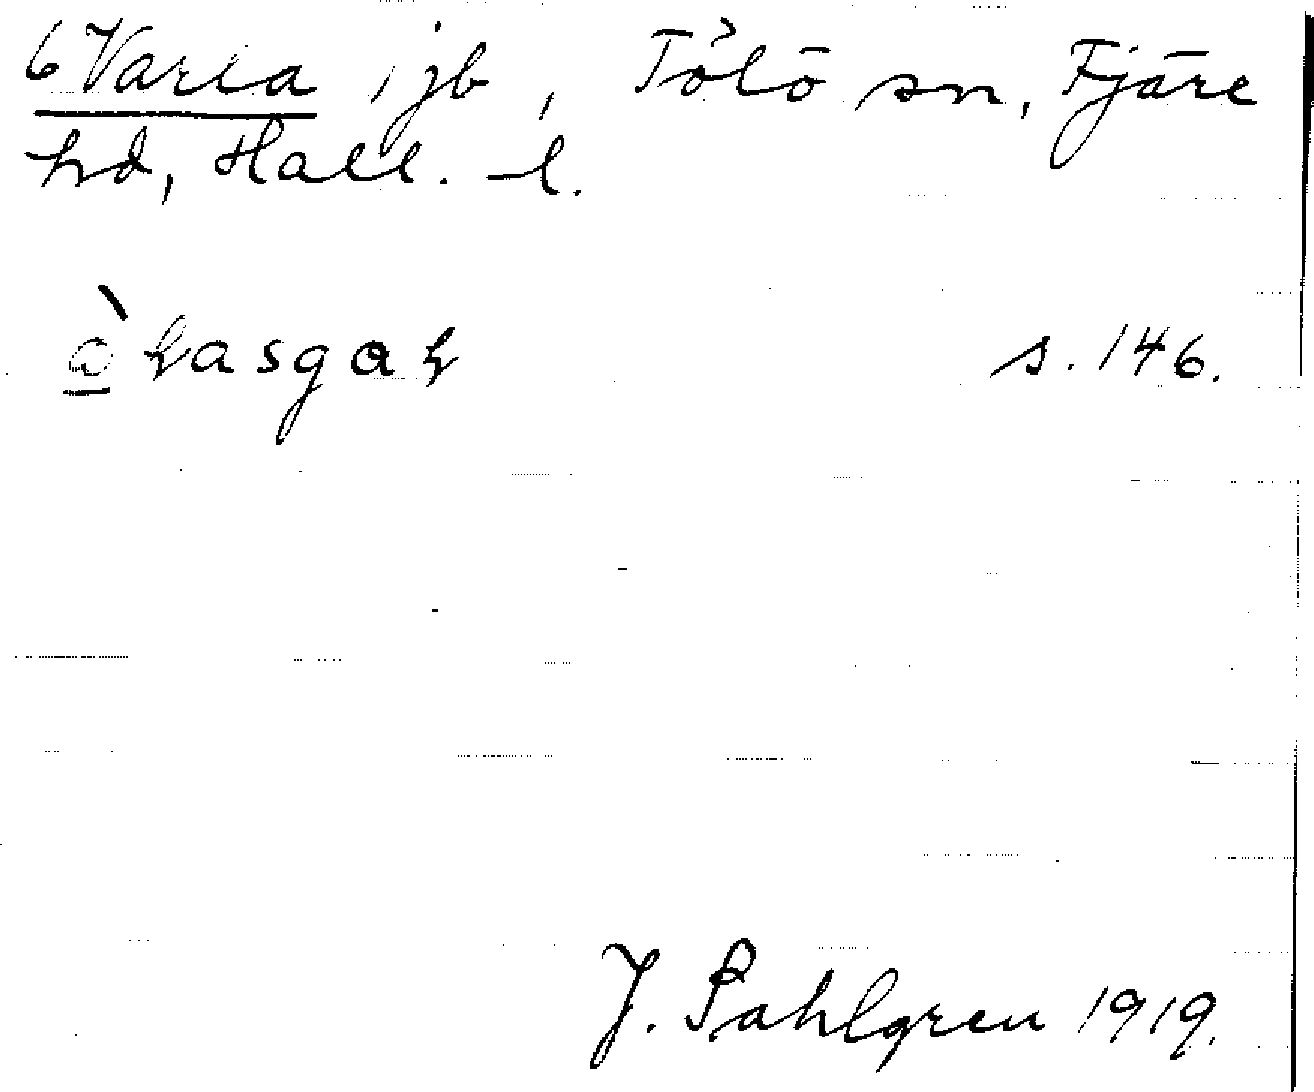 6 Varla, jb, Tölö sn, Fjäre
hd, Hall. l.
s. 146.
J. Sahlgren 1919.